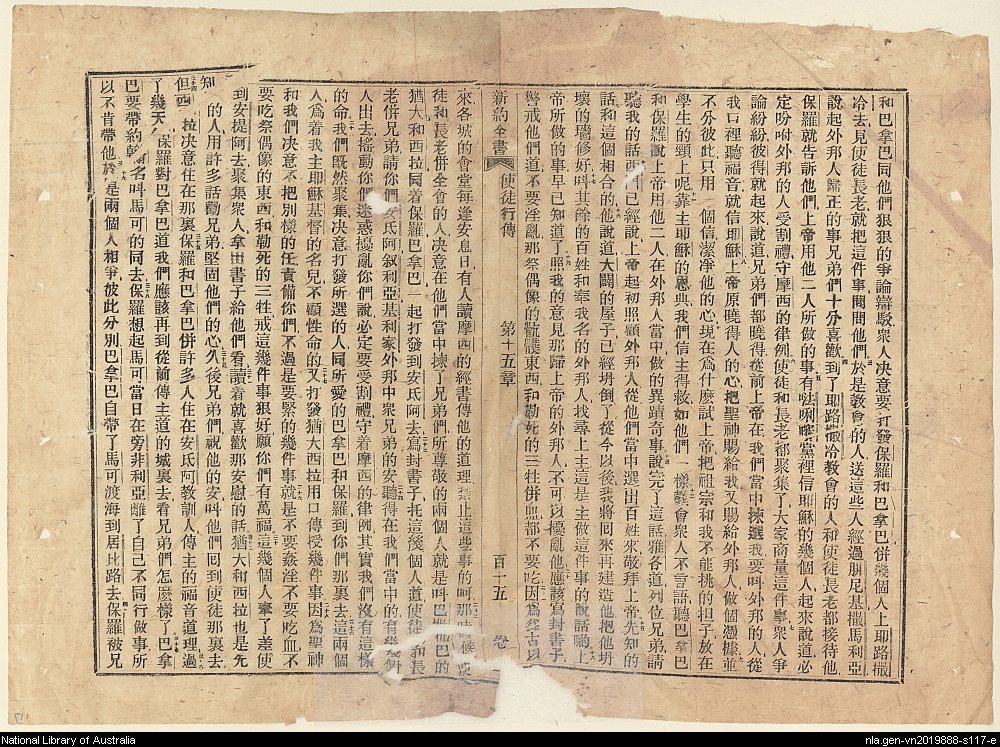 和巴拿巴同他們狠狠的爭論辯駁衆人决意要打發保羅和巴拿巴併幾個人上耶路撒
冷去見使徒長老就把這件事問問他們於是教會的人送這些人經過腓尼基撒馬利亞
說起外邦人歸正的事兄弟們十分喜歡到了耶路撒冷教會的人和使徒長老都接待他
保羅就告訴他們上帝用他二人所做的事有𠵽唎㘔堂裡信耶穌的幾個人起來說道必
定吩咐外邦的人受割禮守摩西的律例使徒和長老都聚集了大家商量這件事衆人爭
論紛紛彼得就起來說道兄弟們都曉得從前上帝在我們當中揀選我要呌外邦的人從
我口裡聽福音就信耶穌上帝原曉得人的心把聖神賜給我又賜給外邦人做個憑據並
不分彼此只用一個信潔淨他的心現在爲什麽試上帝把祖宗和我不能挑的担子放在
學生的頸上呢靠主耶穌的恩典我們信主得救如他們一樣教會衆人不言語聽巴拿巴
和保羅說上帝用他二人在外邦人當中做的異蹟奇事說完了這話雅各道列位兄弟請
聽我的話西門已經說上帝起初照顧外邦人從他們當中選出百姓來敬拜上帝先知的
話和這個相合的他說道大闢的屋子已經坍倒了從今以後我將囘來再建造他把他坍
壞的牆修好呌其餘的百姓和奉我名的外邦人找尋上主這是主做這件事的說話喲上
帝所做的事早已知道了照我的意見那歸上帝的外邦人不可以擾亂他應該寫封書子
警戒他們道不要淫亂那祭偶像的骯髒東西和勒死的三牲併血都不要吃因爲從古以
新約全書 使徒行傳 第十五章 百十五 卷
來各城的會堂每逢安息日有人讀摩西的經書傳他的道理禁止這些事的呵那時候使
徒和長老併全會的人决意在他們當中揀了兄弟們所尊敬的兩個人就是呌巴撒巴的
猶大和西拉同着保羅巴拿巴一起打發到安氐阿去寫封書子托這幾個人道使徒和長
老併兄弟請你們安氐阿叙利亞基利家外邦中衆兄弟的安聽得在我們當中的有幾個
人出去搖動你們迷惑擾亂你們說必定要受割禮守着摩西的律例其實我們沒有這樣
的命我們旣然聚集决意打發所選的人同所愛的巴拿巴和保羅到你們那裏去這兩個
人爲着我主耶穌基督的名兒不顧性命的又打發猶大西拉用口傳授幾件事因爲聖神
和我們决意不把別樣的任責備你們不過是要緊的幾件事就是不要姦淫不要吃血不
要吃祭偶像的東西和勒死的三牲戒這幾件事狠好願你們有萬福這幾個人奉了差使
到安提阿去聚集衆人拿出書子給他們看讀着就喜歡那安慰的話猶大和西拉也是先
知的人用許多話勸兄弟堅固他們的心久後兄弟們祝他的安呌他們囘到使徒那裏去
但西拉决意住在那裏保羅和巴拿巴併許多人住在安氐阿教訓人傳主的福音道理過
了幾天保羅對巴拿巴道我們應該再到從前傳主道的城裏去看兄弟們怎麽樣了巴拿
巴要帶約翰名呌馬可的同去保羅想起馬可當日在旁非利亞離了自己不同行做事所
以不肯帶他於是兩個人相爭彼此分別巴拿巴自帶了馬可渡海到居比路去保羅被兄
National Library of Australia
nla.gen-vn2019888-s117-e